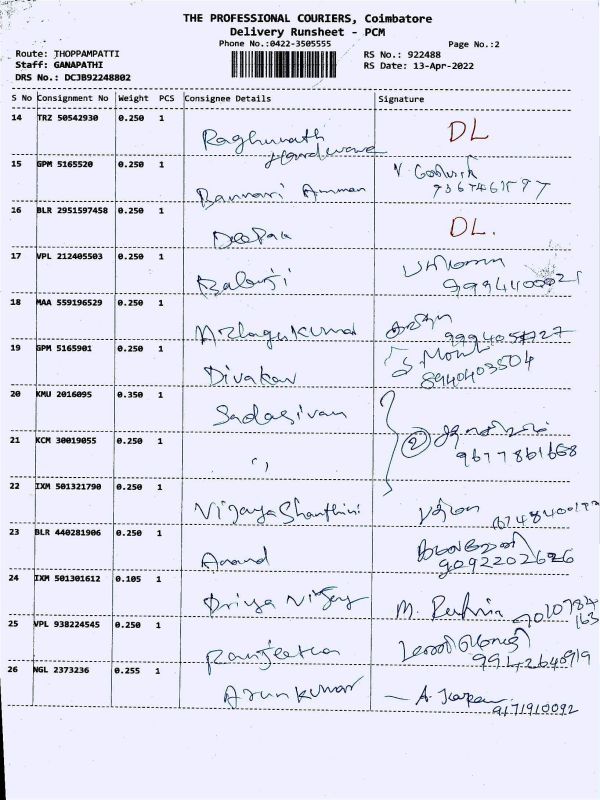 THE PROFESSIONAL COURIERS, Coimbatore
Delivery Runsheet - PCM
Phone No.:0422-3505555
Page No.:2
Route: THOPPAMPATTI
RS No.: 922488
Staff: GANAPATHI
RS Date: 13-Apr-2022
DRS No.: DCJB92248802
S No Consignment No Weight PCS Consignee Details Signature
14 TRZ 50542930 0.250 1
Raghunath DL
Hardware
15 GPM 5165520 0.250 1
Bannari Amman
16 BLR 2951597458 0.250 1
Deepak DL.
17 VPL 212405503 0.250 1
Balaji
18 MAA 559196529 0.250 1
Azhagukumar
19 GPM 5165901 0.250 1
Divakar 8940403504
20 KMU 2016095 0.350 1
Sadasivan
21 KCM 30019055 0.250 1
" 2 9677861668
22 IXM 501321790 0.250 1
Vijaya Shanthini
23 BLR 440281906 0.250 1
Anand 9092202626
24 IXM 501301612 0.105 1
Priya Vijay M.
25 VPL 938224545 0.250 1
Ranjeetha 9942640919
26 NGL 2373236 0.255 1
Arunkumar A.
9171910092